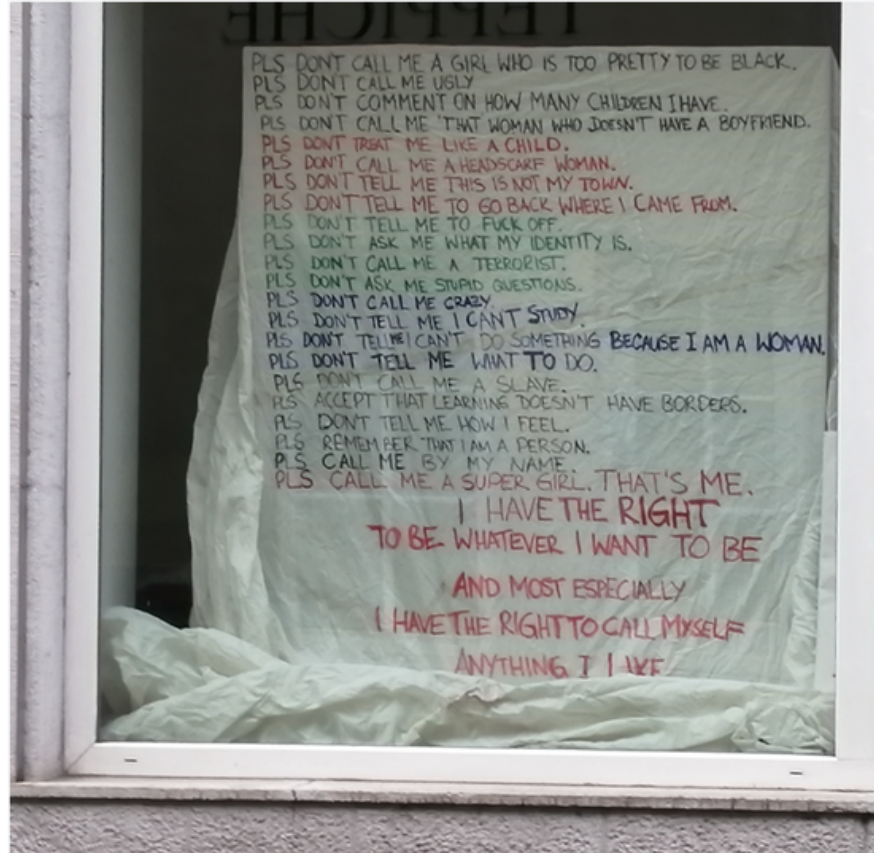 TEPPICHE
PLS DON'T CALL ME A GIRL WHO IS TOO PRETTY TO BE BLACK.
PLS DON'T CALL ME UGLY
PLS DON'T COMMENT ON HOW MANY CHILDREN I HAVE.
PLS DON'T CALL ME 'THAT WOMAN WHO DOESN'T HAVE A BOYFRIEND.
PLS DONT TREAT ME LIKE A CHILD.
PLS DON'T CALL ME A HEADSCARF WOMAN.
PLS DON'T TELL ME THIS IS NOT MY TOWN.
PLS DON'T TELL ME TO GO BACK WHERE I CAME FROM.
PLS DON'T TELL ME TO FUCK OFF.
PLS DON'T ASK ME WHAT MY IDENTITY IS.
PLS DON'T CALL ME A TERRORIST.
PLS DON'T ASK ME STUPID QUESTIONS.
PLS DON'T CALL ME CRAZY.
PLS DON'T TELL ME I CANT STUDY.
PLS DON'T TELL ME I CAN'T DO SOMETHING BECAUSE I AM A WOMAN.
PLS DON'T TELL ME WHAT TO DO.
PLS DON'T CALL ME A SLAVE.
PLS ACCEPT THAT LEARNING DOESN'T HAVE BORDERS.
PLS DON'T TELL ME HOW I FEEL.
PLS REMEMBER THAT I AM A PERSON.
PLS CALL ME BY MY NAME.
PLS CALL ME A SUPER GIRL. THAT'S ME.
I HAVE THE RIGHT
TO BE WHATEVER I WANT TO BE
AND MOST ESPECIALLY
I HAVE THE RIGHT TO CALL MYSELF
ANYTHING I LIKE